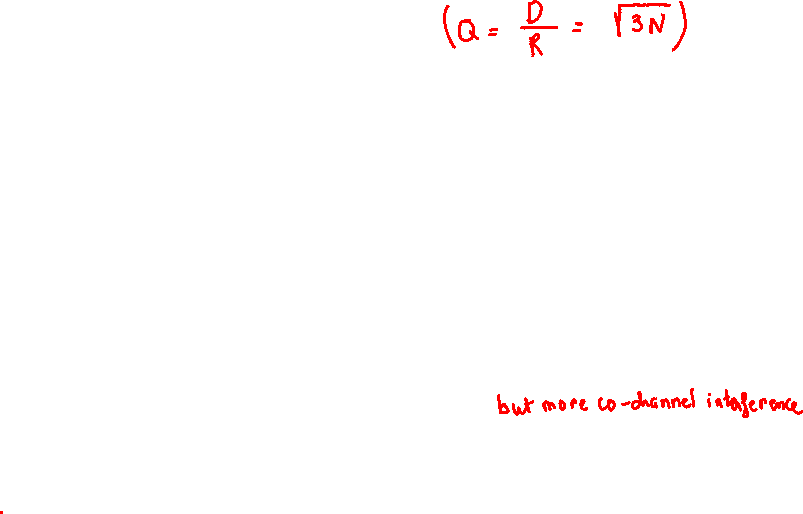 (Q = D/R = √3N)
but more co-channel interference